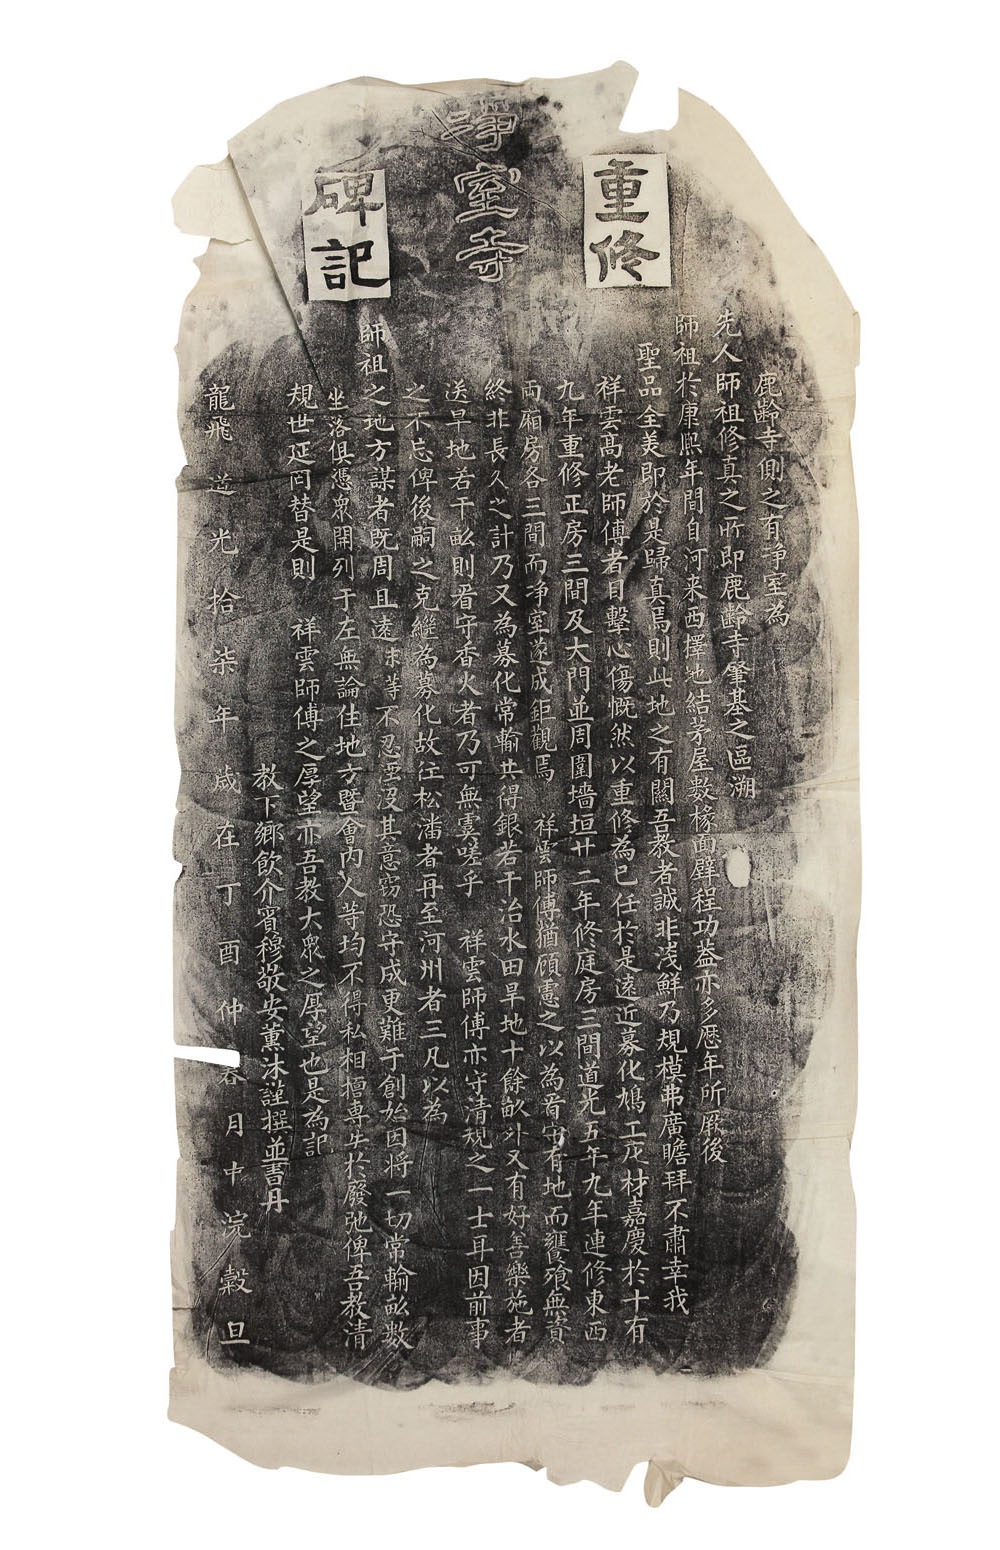 重修
淨室寺
碑記
鹿齡寺側之有淨室為
先人師祖修真之所即鹿齡寺肇基之區溯
師祖於康熙年間自河来西擇地結茅屋数椽面壁程功葢亦多歷年所厥後
聖品全美即於是歸真焉則此地之有關吾教者誠非浅鮮乃規模弗廣瞻拜不肅幸我
祥雲髙老師傅者目擊心傷慨然以重修為己任於是遠近募化鳩工庀材嘉慶於十有
九年重修正房三間及大門並周圍墻垣廿二年修庭房三間道光五年九年連修東西
両廂房各三間而淨室遂成鉅觀焉 祥雲師傅猶顧慮之以為看守有地而饔飱無資
終非長久之計乃又為募化常輸共得銀若干治水田旱地十餘畝外又有好善樂施者
送旱地若干畝則看守香火者乃可無虞嗟乎 祥雲師傅亦守清規之一士耳因前事
之不忘俾後嗣之克繼為募化故往松潘者再至河州者三凡以為
師祖之地方謀者既周且遠 等不忍湮沒其意竊恐守成更難于創始因将一切常輸畝数
坐落俱憑衆開列于左無論住地方暨會內人等均不得私相擅專失於廢弛俾吾教清
規世延罔替是則 祥雲師傅之厚望亦吾教大衆之厚望也是為記
教下鄉飲介賓穆敬安薰沐謹撰並書丹
龍飛道光拾柒年歲在丁酉仲春月中浣穀旦